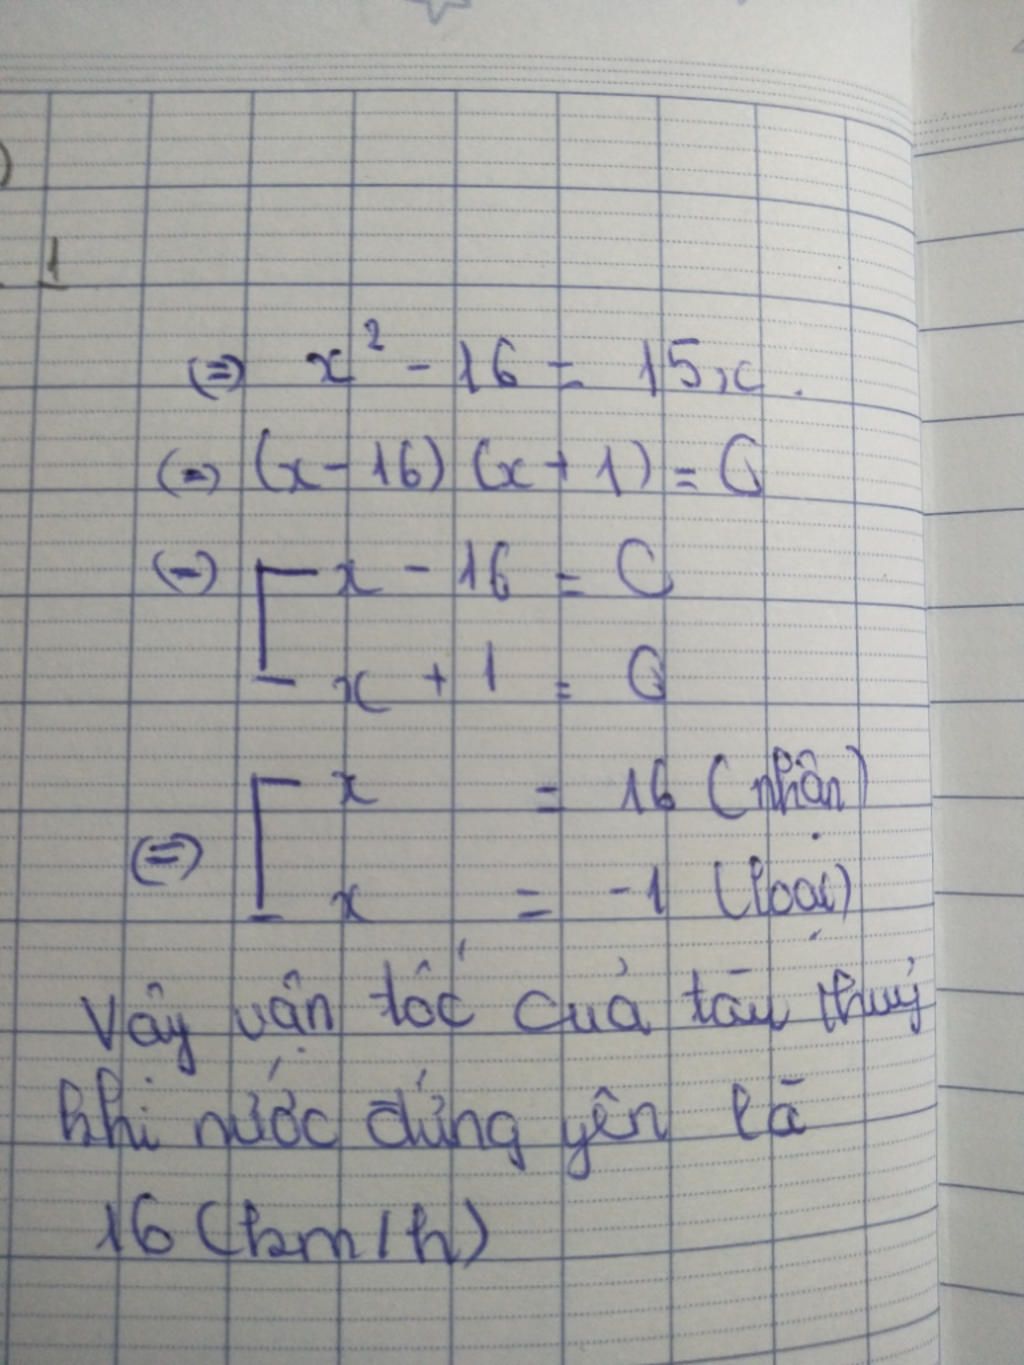 )
1
(=) x² - 16 = 15x.
(=) (x - 16) (x + 1) = 0
(=) [ x - 16 = 0
x + 1 = 0
(=) [ x = 16 (nhận)
x = -1 (loại)
Vậy vận tốc của tàu thuỷ
khi nước đứng yên là
16 (km/h)